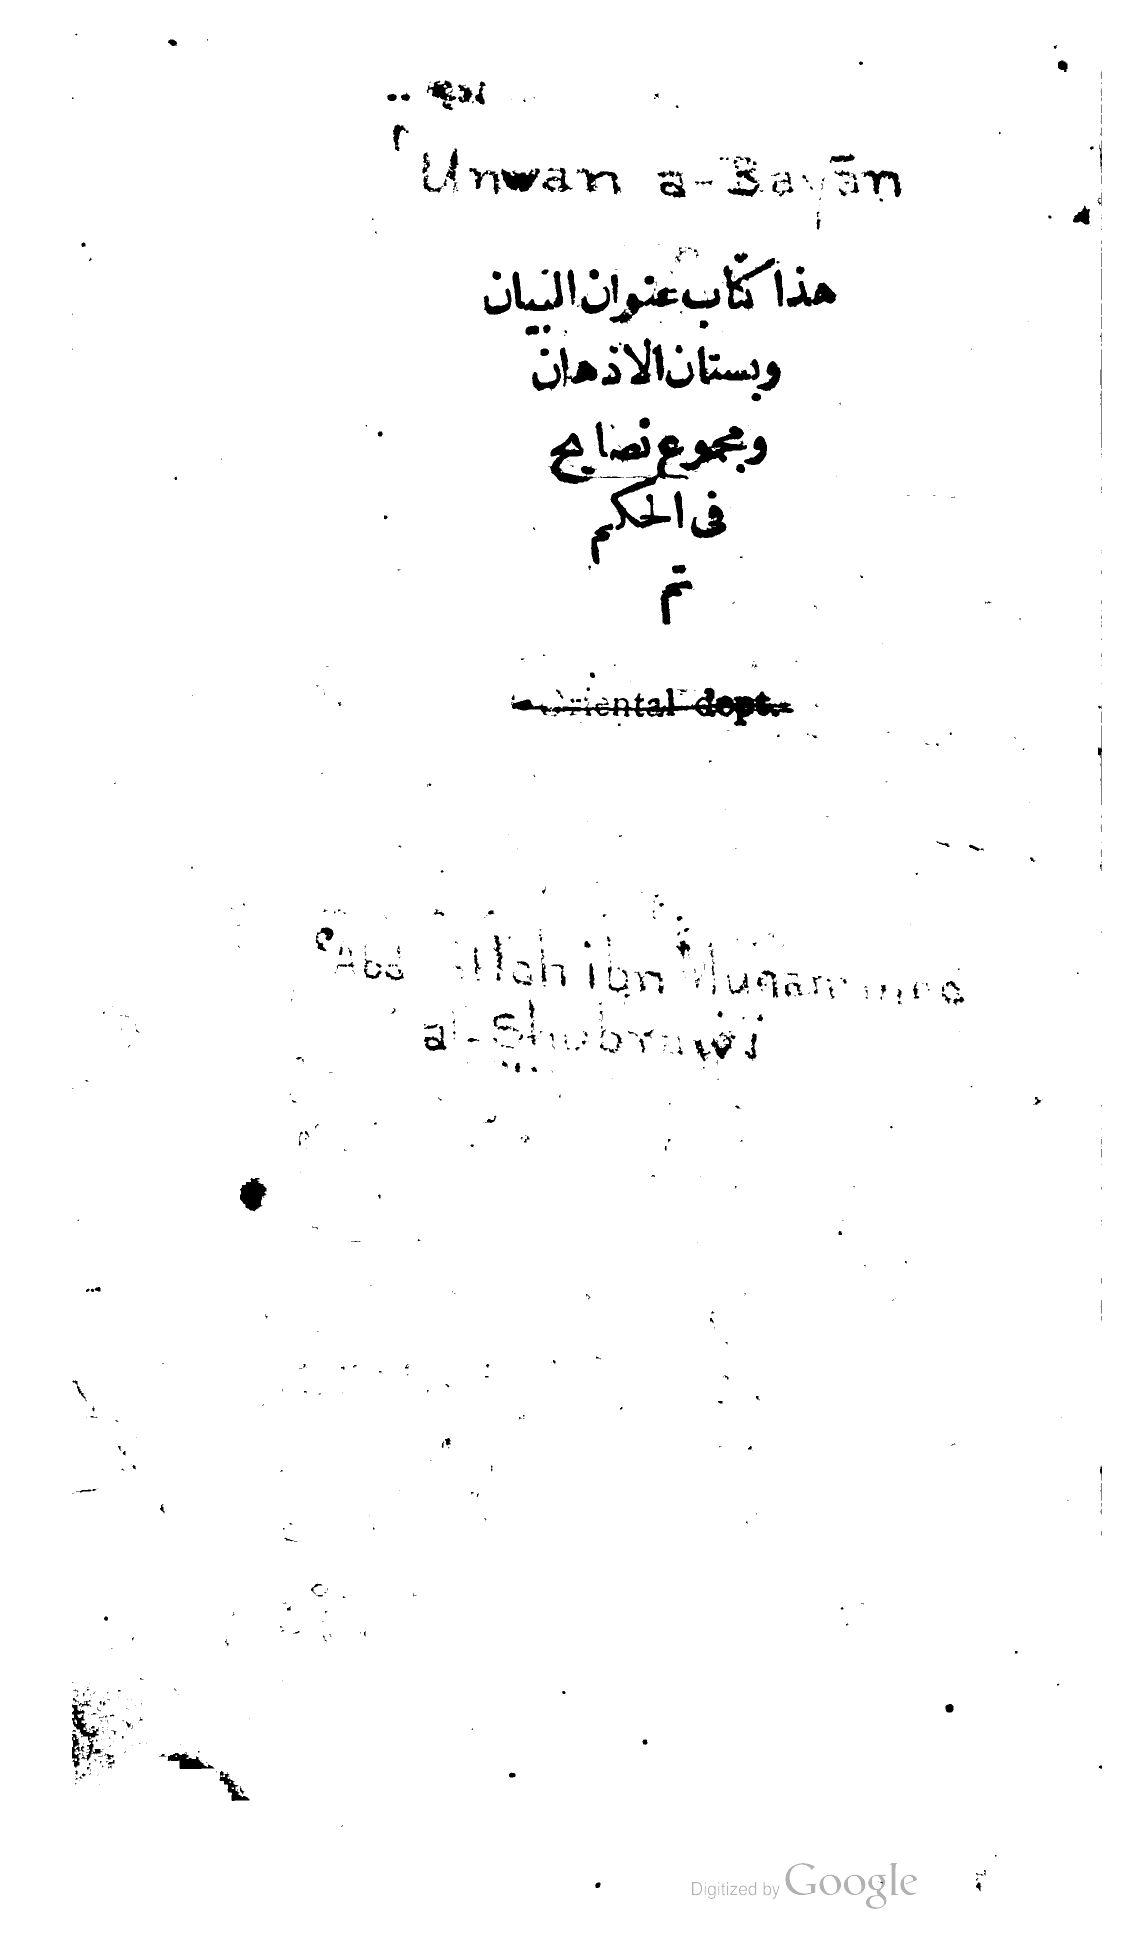 ʿUnwan a-Bayān
هذا كتاب عنوان البيان
وبستان الاذهان
ومجموع نصايح
فى الحكم
تم
Oriental dept.
ʿAbd allah ibn Muhammed
al-Shubrawi
Digitized by Google